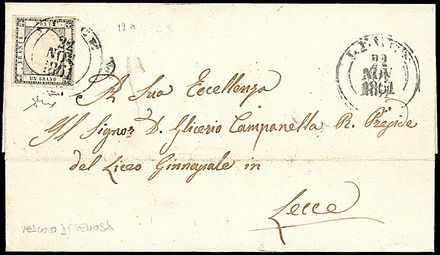 FRANCO POSTE
UN GRANO
22
NOV
1861
LECCE
22
NOV
1861
A Sua Eccellenza
Il Signor D. Glicerio Campanella R. Preside
del Liceo Ginnasiale in
Lecce
VESCOVO DI VENOSA